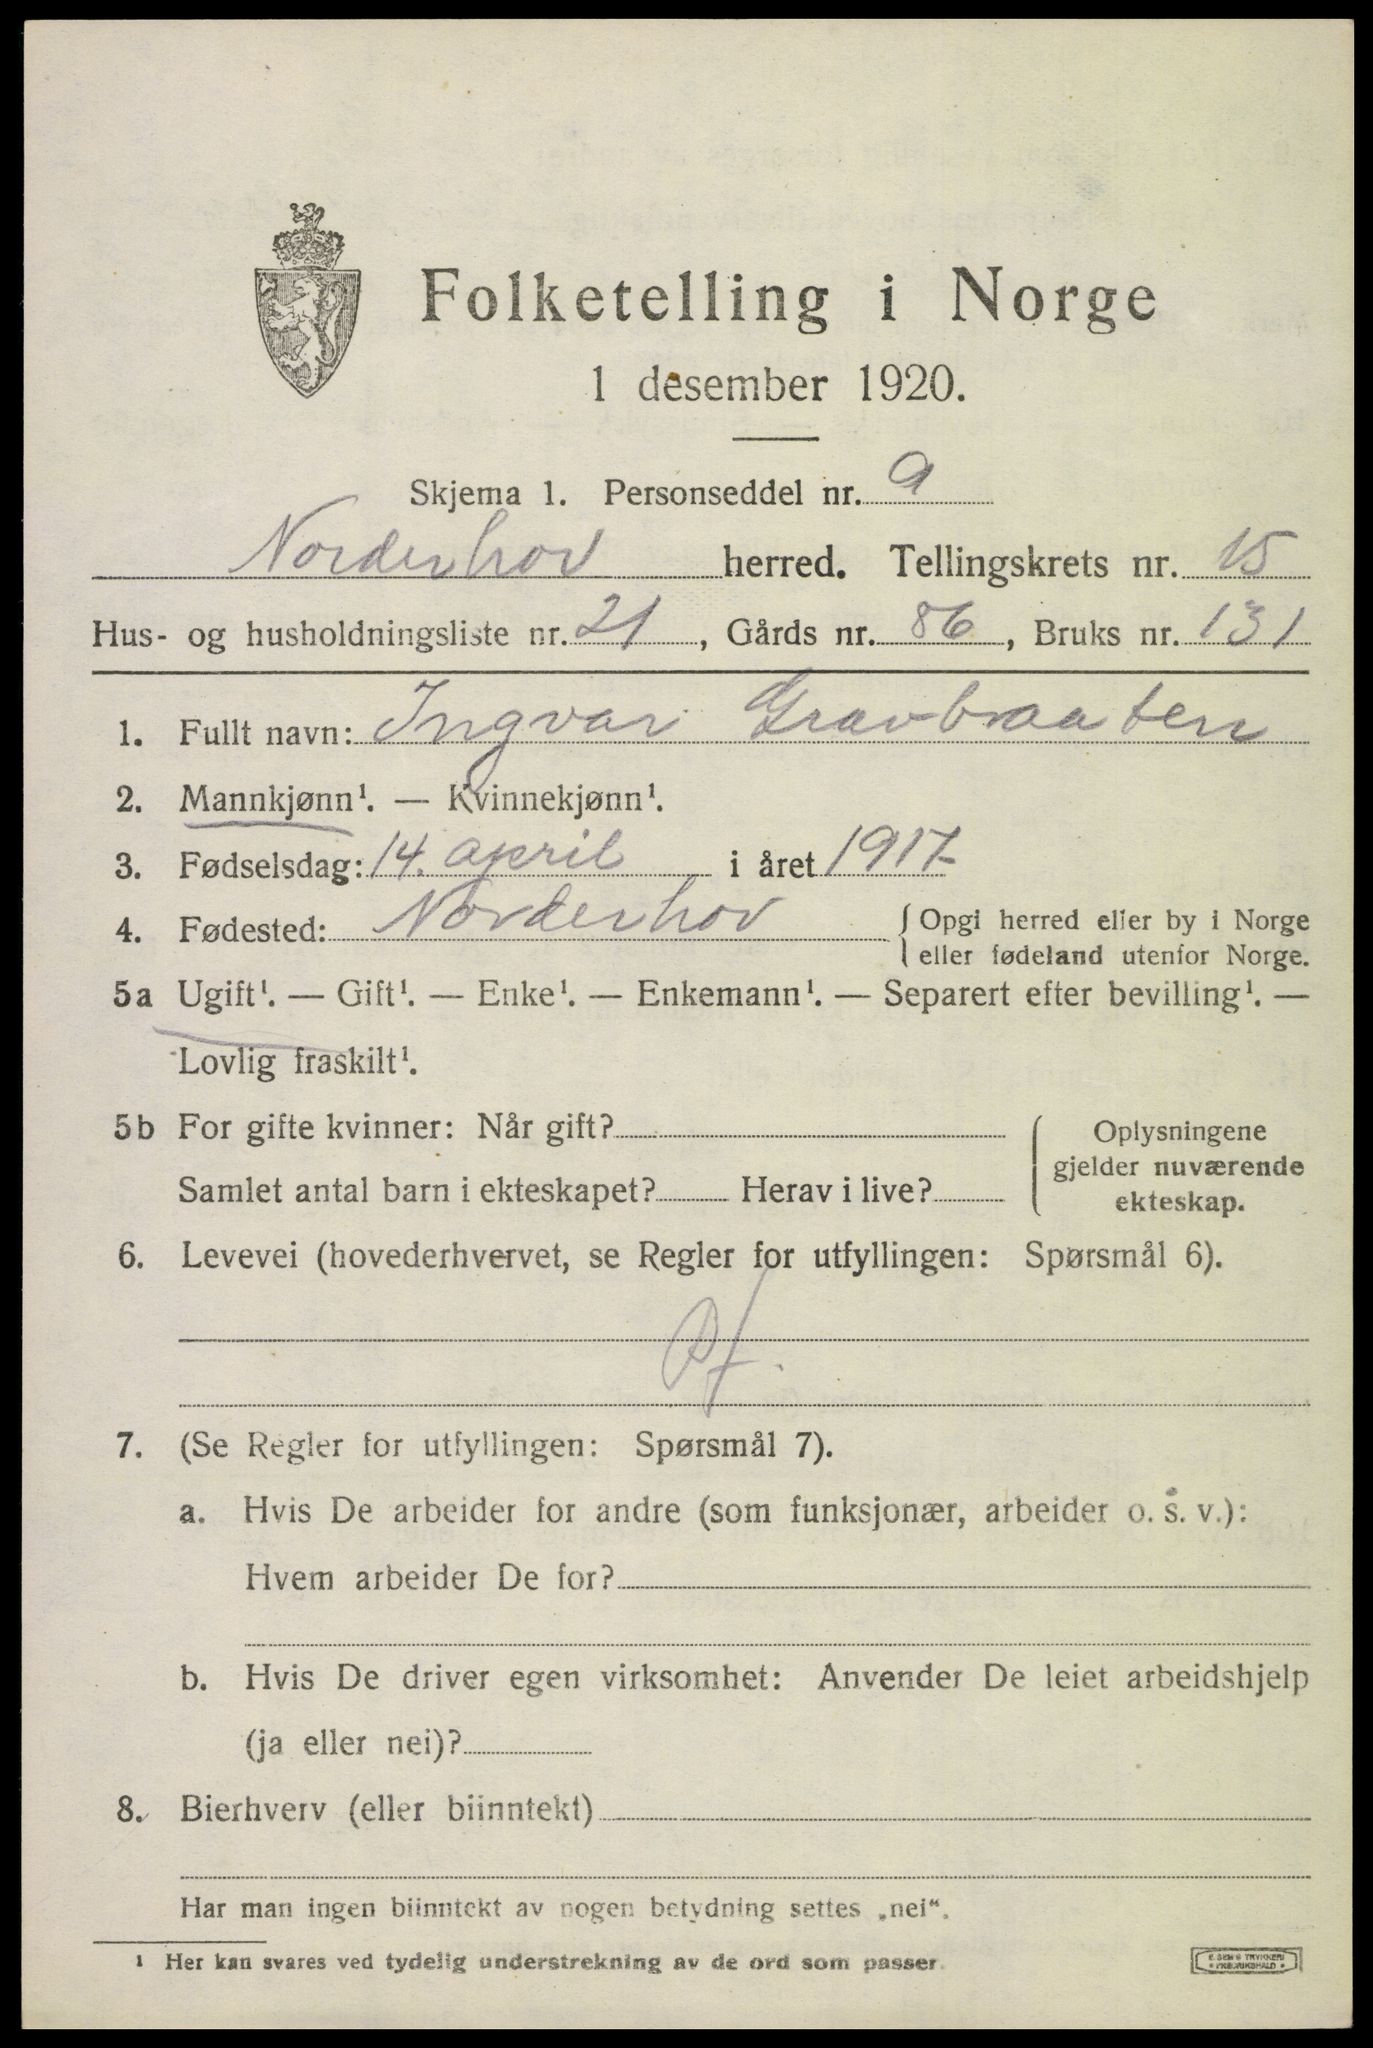 Folketelling i Norge
1 desember 1920.
Skjema 1. Personseddel nr. 9
Norderhov herred. Tellingskrets nr. 15
Hus- og husholdningsliste nr. 21, Gårds nr. 86, Bruks nr. 131
1. Fullt navn: Ingvar Gravbraaten
2. Mannkjønn¹. — Kvinnekjønn¹.
3. Fødselsdag: 14. april i året 1917
4. Fødested: Norderhov { Opgi herred eller by i Norge
eller fødeland utenfor Norge.
5a Ugift¹. — Gift¹. — Enke¹. — Enkemann¹. — Separert efter bevilling¹. —
Lovlig fraskilt¹.
5b For gifte kvinner: Når gift?
Samlet antal barn i ekteskapet? Herav i live?
{ Oplysningene
gjelder nuværende
ekteskap.
6. Levevei (hovederhvervet, se Regler for utfyllingen: Spørsmål 6).
7. (Se Regler for utfyllingen: Spørsmål 7).
a. Hvis De arbeider for andre (som funksjonær, arbeider o. s. v.):
Hvem arbeider De for?
b. Hvis De driver egen virksomhet: Anvender De leiet arbeidshjelp
(ja eller nei)?
8. Bierhverv (eller biinntekt)
Har man ingen biinntekt av nogen betydning settes „nei“.
¹ Her kan svares ved tydelig understrekning av de ord som passer.
E. SEM'S TRYKKERI
FREDRIKSHALD